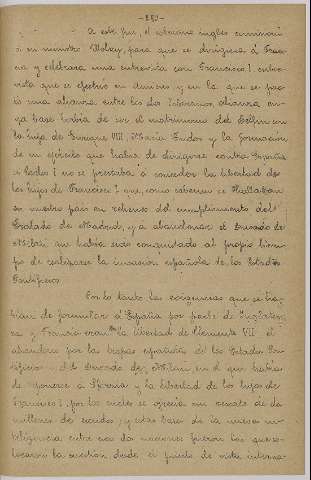 -280-
A este fin, el soberano inglés comisionó
a su ministro Wolsey, para que se dirigiera á Fran-
cia y celebrara una entrevista con Francisco I, entre-
vista que se efectuó en Amiens, y en la que se pac-
tó una alianza entre los dos soberanos, alianza cu-
ya base había de ser el matrimonio del Delfin con
la hija de Enrique VIII María Tudor y la formación
de un ejército que habia de dirigirse contra España
si Carlos I no se prestaba á conceder la libertad de
los hijos de Francisco I que, como sabemos se hallaban
en nuestro país en rehenes del cumplimiento del
Tratado de Madrid, y a abandonar el Ducado de
Milán que había sido conquistado al propio tiem-
po de realizarse la invasión española de los Estados
Pontificios.
Por lo tanto las exigencias que se ha-
bían de formular á España por parte de Inglater-
ra y Francia eran la libertad de Clemente VII el
abandono por las tropas españolas de los Estados Pon-
tificios el Ducado de Milán en el que había
de reponerse á Sforcia y la libertad de los hijos de
Francisco I, por los cuales se ofrecía un rescate de dos
millones de escudos, y estas bases de la nueva in-
teligencia entre esas dos naciones fueron las que co-
locaron la cuestion desde el punto de vista interna-